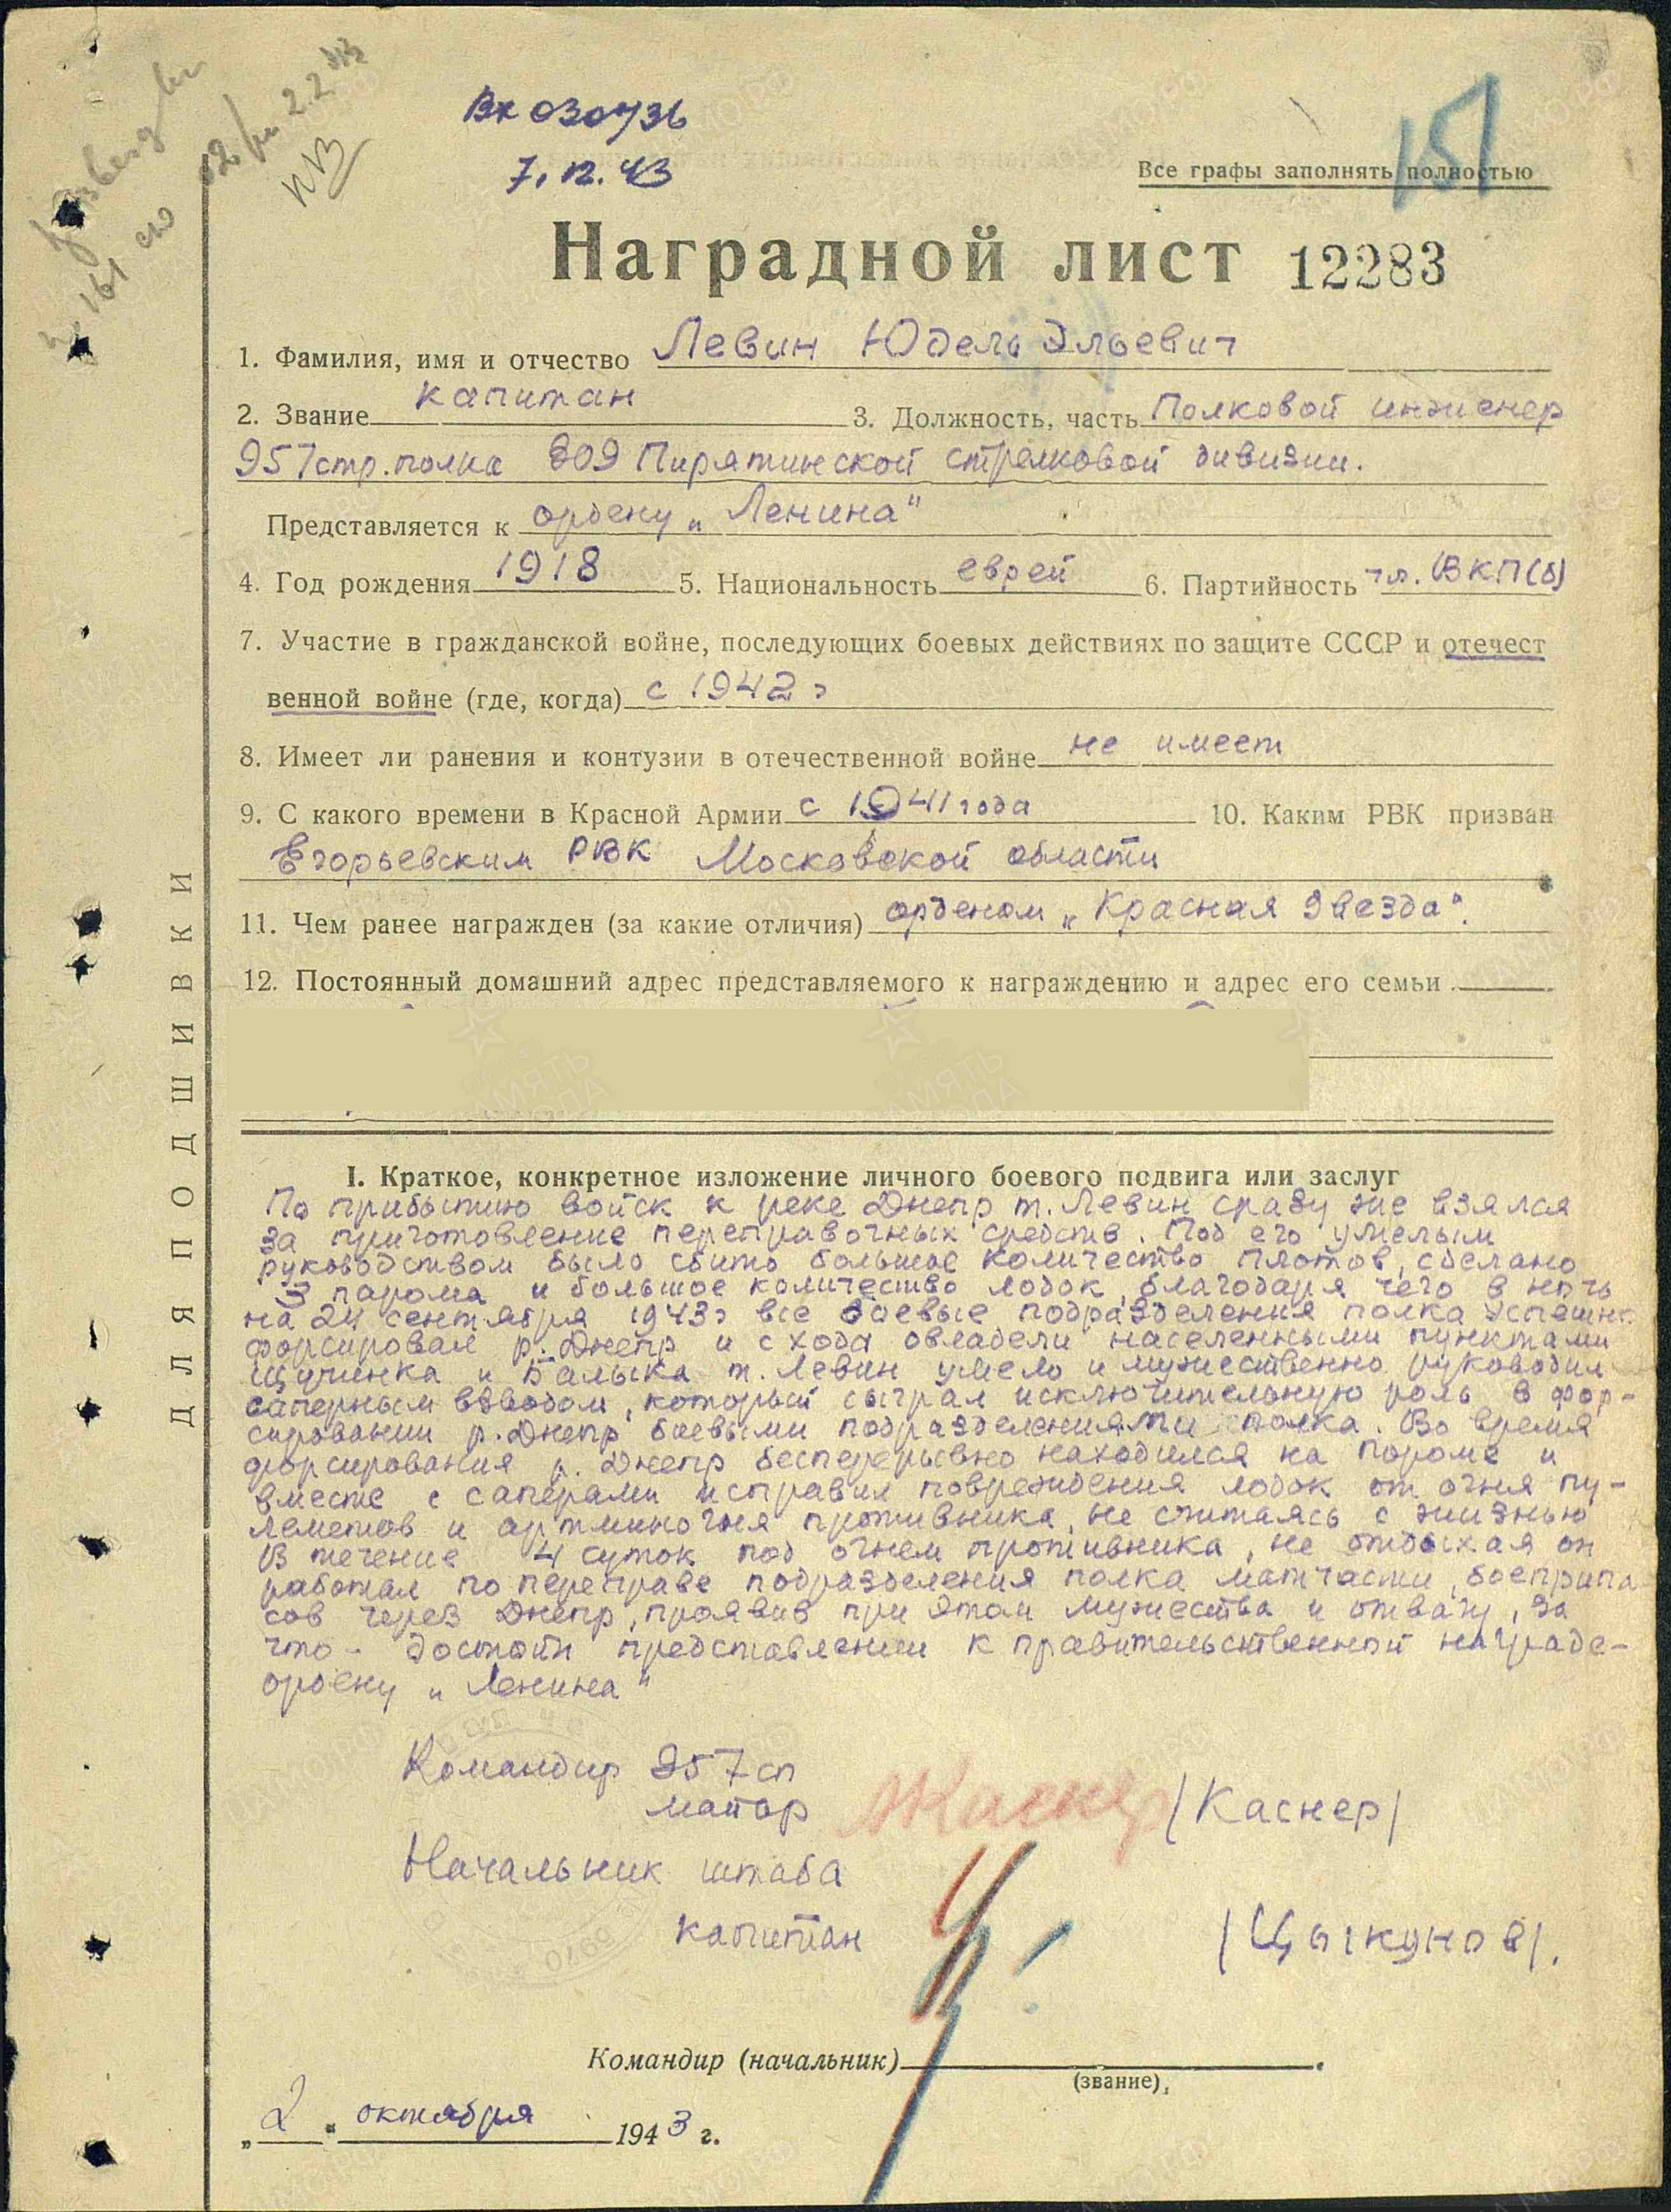 Вх 030736
7.12.43
151
Все графы заполнять полностью
Наградной лист 12283
1. Фамилия, имя и отчество Левин Юдель Эльевич
2. Звание капитан 3. Должность, часть Полковой инженер
957 стр. полка 309 Пирятинской стрелковой дивизии.
Представляется к ордену „Ленина"
4. Год рождения 1918 5. Национальность еврей 6. Партийность чл. ВКП(б)
7. Участие в гражданской войне, последующих боевых действиях по защите СССР и отечест
венной войне (где, когда) с 1942 г
8. Имеет ли ранения и контузии в отечественной войне не имеет
9. С какого времени в Красной Армии с 1941 года 10. Каким РВК призван
Егорьевским РВК Московской области
11. Чем ранее награжден (за какие отличия) орденом „Красная Звезда".
12. Постоянный домашний адрес представляемого к награждению и адрес его семьи
ДЛЯ ПОДШИВКИ
I. Краткое, конкретное изложение личного боевого подвига или заслуг
По прибытию войск к реке Днепр т. Левин сразу же взялся
за приготовление переправочных средств. Под его умелым
руководством было сбито большое количество плотов, сделано
3 парома и большое количество лодок, благодаря чего в ночь
на 24 сентября 1943г все боевые подразделения полка успешно
форсировал р. Днепр и с хода овладели населенными пунктами
Щучинка и Балыка т. Левин умело и мужественно руководил
саперным взводом, который сыграл исключительную роль в фор-
сировании р. Днепр боевыми подразделениями полка. Во время
форсирования р. Днепр беспрерывно находился на пороме и
вместе с саперами исправил повреждения лодок от огня пу-
леметов и артминогня противника, не считаясь с жизнью
В течение 4 суток под огнем противника, не отдыхая он
работал по переправе подразделения полка матчасти, боеприпа
сов через Днепр, проявив при этом мужества и отвагу, за
что - достоин представлении к правительственной награде-
ордену „Ленина"
Командир 957 сп
майор /Каснер/
Начальник штаба
капитан /Цыкунов/.
Командир (начальник)
(звание),
„2" октября 1943 г.